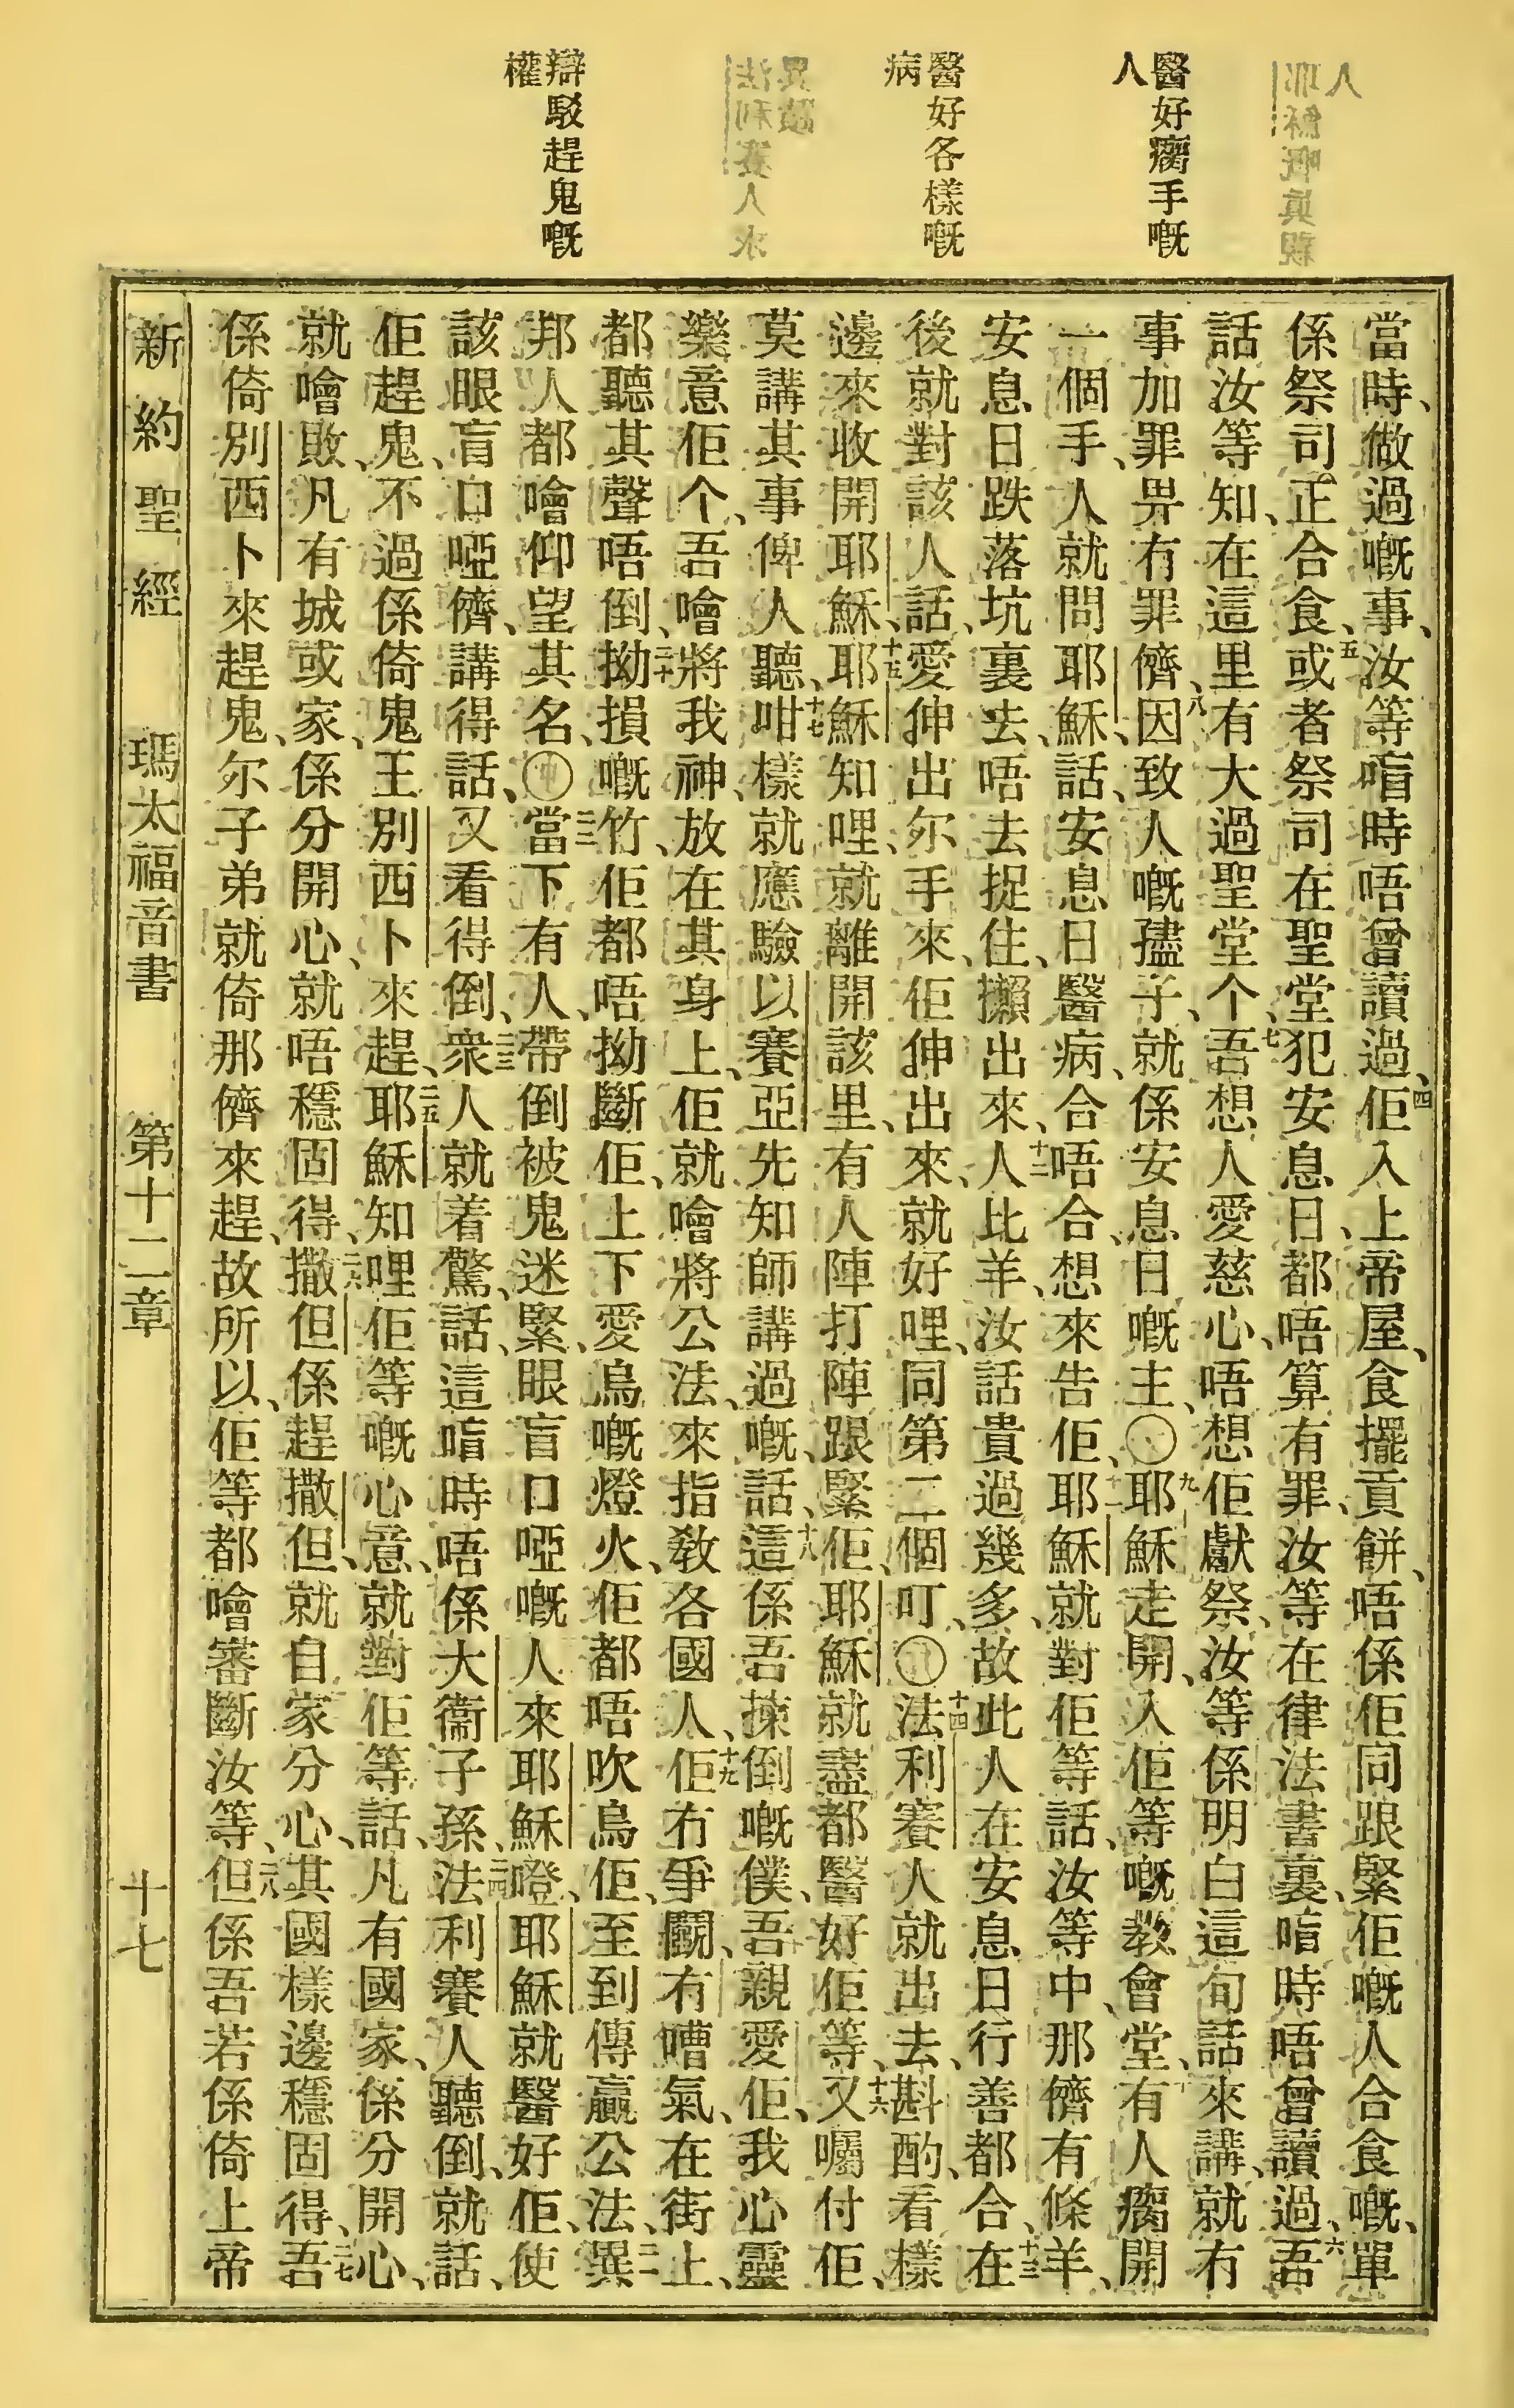 醫好瘸手嘅
人
醫好各樣嘅
病
辯駁趕鬼嘅
權
當時、做過嘅事、汝等唷時唔曾讀過、四佢入上帝屋、食擺貢餅、唔係佢同跟緊佢嘅人合食嘅、單
係祭司正合食、五或者祭司在聖堂犯安息日、都唔算有罪、汝等在律法書裏、唷時唔曾讀過、六吾
話汝等知、在這里有大過聖堂个、七吾想人愛慈心、唔想佢獻祭、汝等係明白這句話來講、就冇
事加罪畀有罪儕、八因致人嘅孻子、就係安息日嘅主、〇九耶穌走開、入佢等嘅教會堂、十有人瘸開
一個手、人就問耶穌話、安息日醫病、合唔合、想來告佢、十一耶穌就對佢等話、汝等中、那儕有條羊、
安息日跌落坑裏去、唔去捉住、攋出來、十二人比羊、汝話貴過幾多、故此人在安息日行善都合、十三在
後就對該人話、愛伸出尔手來、佢伸出來、就好哩、同第二個叮、〇十四法利賽人就出去、斟酌、看樣
邊來收開耶穌、十五耶穌知哩、就離開該里、有人陣打陣跟緊佢、耶穌就盡都醫好佢等、十六又囑付佢、
莫講其事俾人聽、十七咁樣就應驗以賽亞先知師講過嘅話、十八這係吾揀倒嘅僕、吾親愛佢、我心靈
樂意佢个、吾噲將我神、放在其身上、佢就噲將公法、來指教各國人、十九佢冇爭鬭、有嘈氣、在街上、
都聽其聲唔倒、二十拗損嘅竹、佢都唔拗斷佢、上下愛烏嘅燈火、佢都唔吹烏佢、至到傳贏公法、二一異
邦人都噲仰望其名、〇二二當下有人、帶倒被鬼迷緊、眼盲口啞嘅人來耶穌嶝、耶穌就醫好佢、使
該眼盲口啞儕、講得話、又看得倒、二三衆人就着驚、話這唷時唔係大衞子孫、二四法利賽人聽倒、就話、
佢趕鬼、不過係倚鬼王別西卜來趕、二五耶穌知哩佢等嘅心意、就對佢等話、凡有國家、係分開心、
就噲敗、凡有城或家、係分開心、就唔穩固得、二六撒但係趕撒但、就自家分心、其國樣邊穩固得、二七吾
係倚別西卜來趕鬼、尔子弟就倚那儕來趕、故所以、佢等都噲審斷汝等、二八但係吾若係倚上帝
新約聖經 瑪太福音書 第十二章 十七